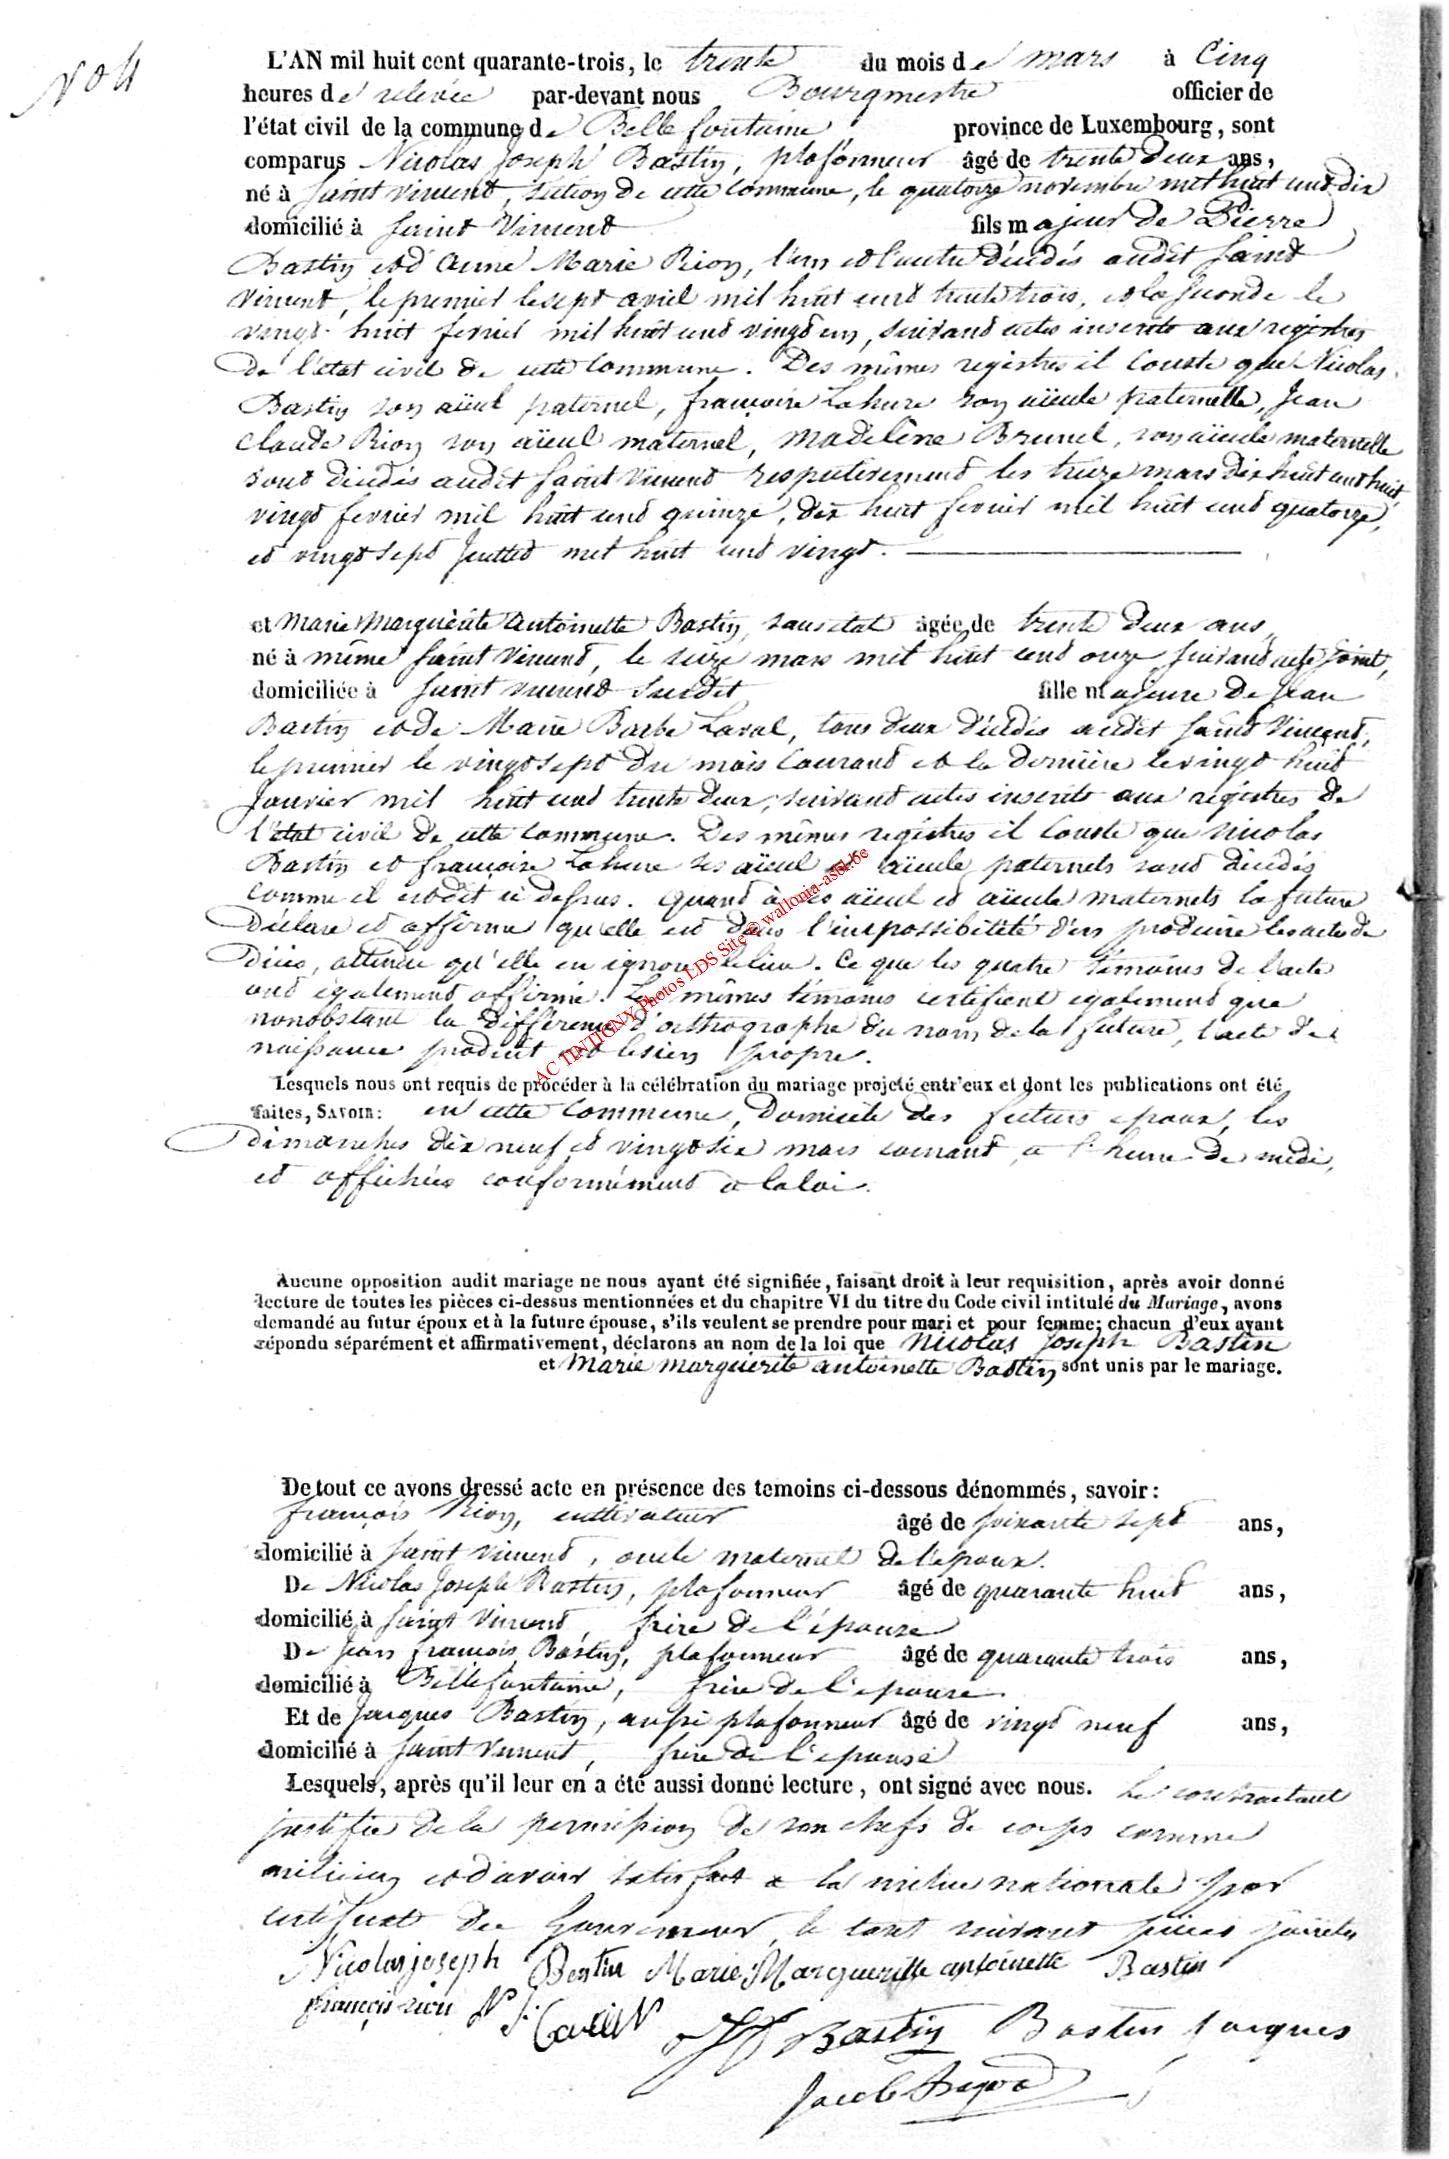 N° 4
L'AN mil huit cent quarante-trois, le trente du mois de mars à Cinq
heures de relevée par-devant nous Bourgmestre officier de
l'état civil de la commune de Bellefontaine, province de Luxembourg, sont
comparus Nicolas Joseph Bastin, plafonneur âgé de trente deux ans,
né à Saint Vincent, section de cette commune, le quatorze novembre mil huit cent dix
domicilié à Saint Vincent fils majeur de Pierre
Bastin et d'Anne Marie Rion, l'un et l'autre décédés audit Saint
Vincent, le premier le sept avril mil huit cent trente trois, et la seconde le
vingt huit fevrier mil huit cent vingt un, suivant actes inscrits aux registres
de l'état civil de cette commune. Des mêmes registres il conste que Nicolas
Bastin son aïeul paternel, françoise Lahure son aïeule paternelle, Jean
Claude Rion son aïeul maternel, Madelène Brunel, son aïeule maternelle
sont décédés audit Saint Vincent respectivement les treize mars dix huit cent huit,
vingt fevrier mil huit cent quinze, dix huit fevrier mil huit cent quatorze,
et vingt sept Juillet mil huit cent vingt.
et Marie Marguerite Antoinette Bastin, sans etat âgée de trente deux ans,
né à même Saint Vincent, le seize mars mil huit cent onze, suivant acte joint,
domiciliée à Saint Vincent susdit fille majeure de Jean
Bastin et de Marie Barbe Laval, tous deux décédés audit Saint Vincent,
le premier le vingt sept du mois courant et la dernière le vingt huit
Janvier mil huit cent trente deux, suivant actes inscrits aux registres de
l'état civil de cette commune. Des mêmes registres il conste que Nicolas
Bastin et françoise Lahure ses aïeul et aïeule paternels sont décédés
comme il est dit ci dessus. Quand à ses aïeul et aïeule maternels la future
déclare et affirme qu'elle est dans l'impossibilité d'en produire les actes de
décès, attendu qu'elle en ignore le lieu. Ce que les quatre témoins de l'acte
ont egalement affirmé. Les mêmes témoins certifient egalement que
nonobstant la différence d'orthographe du nom de la future, l'acte de
naissance produit est le sien propre.
AC TINTIGNY Photos LDS Site @ wallonia-asbl.be
Lesquels nous ont requis de procéder à la célébration du mariage projeté entr'eux et dont les publications ont été
faites, SAVOIR: en cette commune, domicile des futurs epoux, les
dimanches dix neuf et vingt six mars courant, a l'heure de midi,
et affichées conformément a la loi.
Aucune opposition audit mariage ne nous ayant été signifiée, faisant droit à leur requisition, après avoir donné
lecture de toutes les pièces ci-dessus mentionnées et du chapitre VI du titre du Code civil intitulé du Mariage, avons
demandé au futur époux et à la future épouse, s'ils veulent se prendre pour mari et pour femme; chacun d'eux ayant
répondu séparément et affirmativement, déclarons au nom de la loi que Nicolas Joseph Bastin
et Marie Marguerite Antoinette Bastin sont unis par le mariage.
De tout ce avons dressé acte en présence des temoins ci-dessous dénommés, savoir:
françois Rion, cultivateur âgé de soixante sept ans,
domicilié à Saint Vincent, oncle maternel de l'epoux.
De Nicolas Joseph Bastin, plafonneur âgé de quarante huit ans,
domicilié à Saint Vincent, frère de l'épouse
De Jean François Bastin, plafonneur âgé de quarante trois ans,
domicilié à Bellefontaine, frère de l'epouse
Et de Jacques Bastin, aussi plafonneur âgé de vingt neuf ans,
domicilié à Saint Vincent, frère de l'epouse
Lesquels, après qu'il leur en a été aussi donné lecture, ont signé avec nous. Le contractant
justifie de la permission de son chefs de corps comme
milicien et d'avoir satisfait a la milice nationale par
certificat du Gouverneur, le tout suivant pièces jointes
Nicolas joseph Bastin Marie Margueritte antoinette Bastin
françois rion N J
JF Bastin Bastin Jacques
Jacob